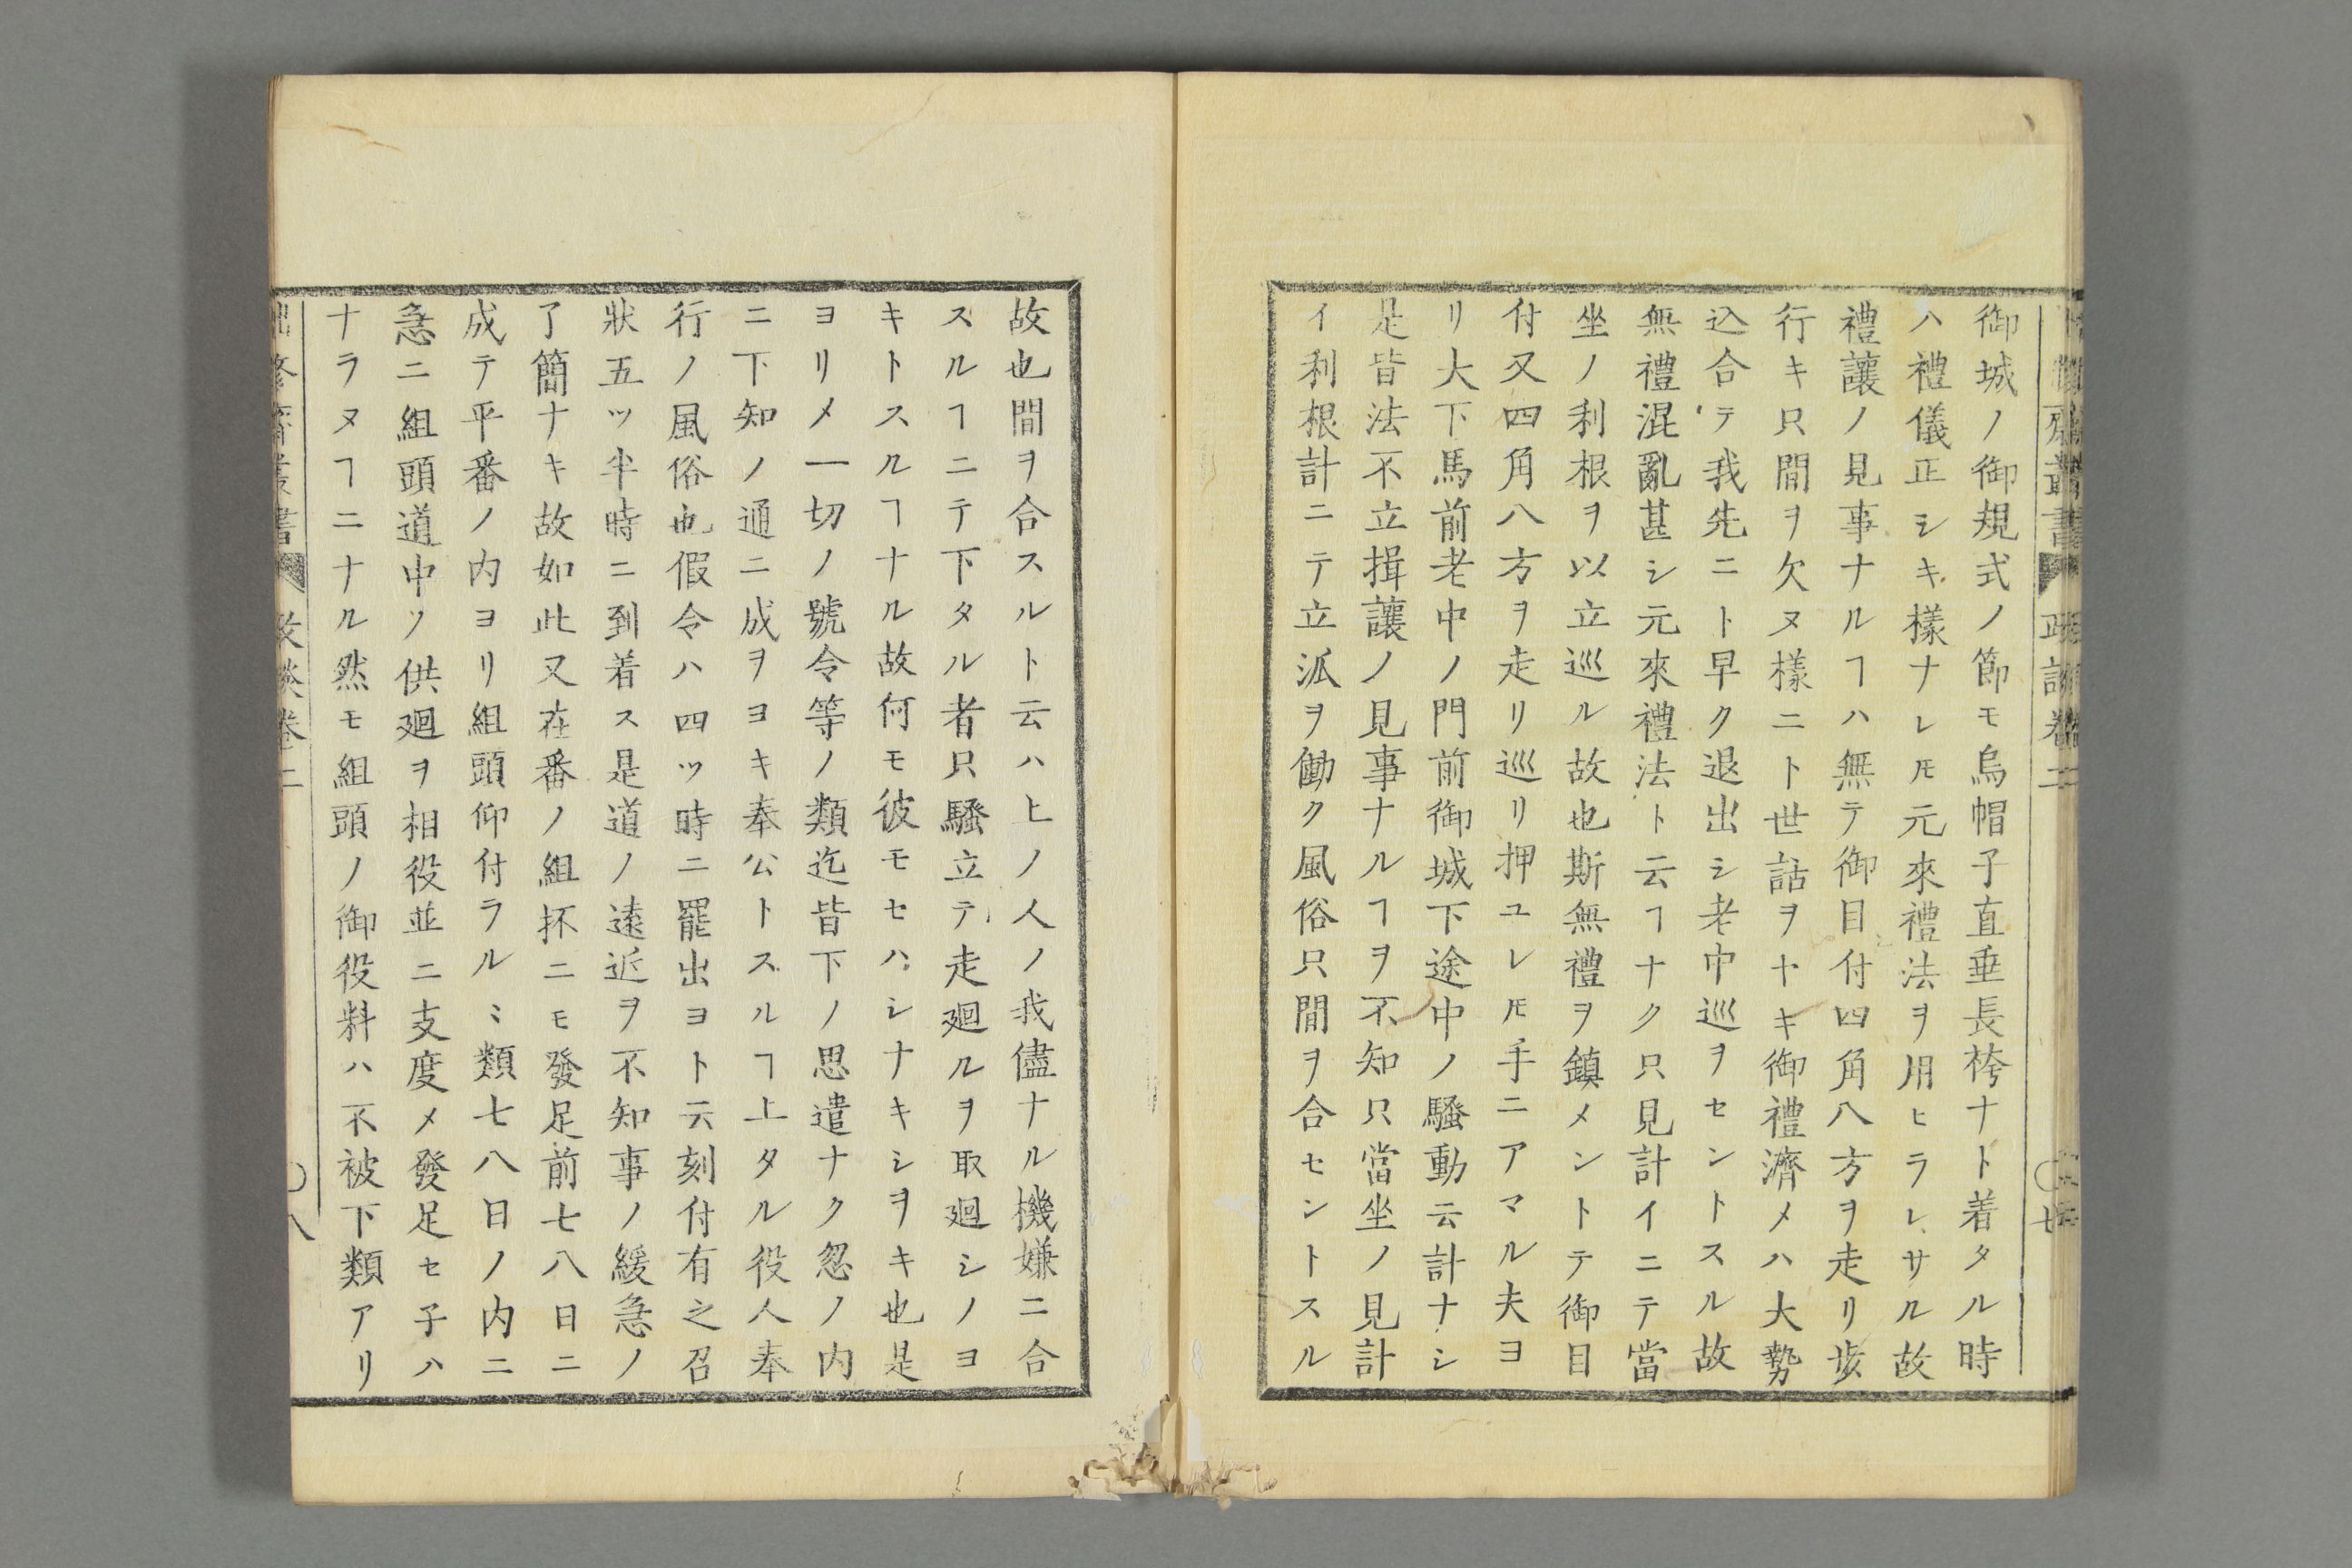 御城ノ御規式ノ節モ烏帽子直垂長袴ナト着タル時
ハ禮儀正シキ樣ナレ𪜈元來禮法ヲ用ヒラレサル故
禮讓ノ見事ナルヿハ無テ御目付四角八方ヲ走リ歩
行キ只間ヲ欠ヌ樣ニト世話ヲヤキ御禮濟メハ大勢
込合テ我先ニト早ク退出シ老中巡ヲセントスル故
無禮混亂甚シ元來禮法ト云ヿナク只見計イニテ當
坐ノ利根ヲ以立巡ル故也斯無禮ヲ鎮メントテ御目
付又四角八方ヲ走リ巡リ押ユレ𪜈手ニアマル夫ヨ
リ大下馬前老中ノ門前御城下途中ノ騷動云計ナシ
是皆法不立揖讓ノ見事ナルヿヲ不知只當坐ノ見計
イ利根計ニテ立派ヲ働ク風俗只間ヲ合セントスル
故也間ヲ合スルト云ハヒノ人ノ我儘ナル機嫌ニ合
スルヿニテ下タル者只騷立テ走廻ルヲ取廻シノヨ
キトスルヿナル故何モ彼モセハシナキシヲキ也是
ヨリメ一切ノ號令等ノ類迄皆下ノ思遣ナク忽ノ内
ニ下知ノ通ニ成ヲヨキ奉公トスルヿ上タル役人奉
行ノ風俗也假令ハ四ツ時ニ罷出ヨト云刻付有之召
狀五ツ半時ニ到着ス是道ノ遠近ヲ不知事ノ緩急ノ
了簡ナキ故如此又在番ノ組抔ニモ發足前七八日ニ
成テ平番ノ内ヨリ組頭仰付ラルヽ類七八日ノ内ニ
急ニ組頭道中ノ供廻ヲ相役並ニ支度メ發足セ子ハ
ナラヌヿニナル然モ組頭ノ御役料ハ不被下類アリ
叢書 政談卷二 〇八